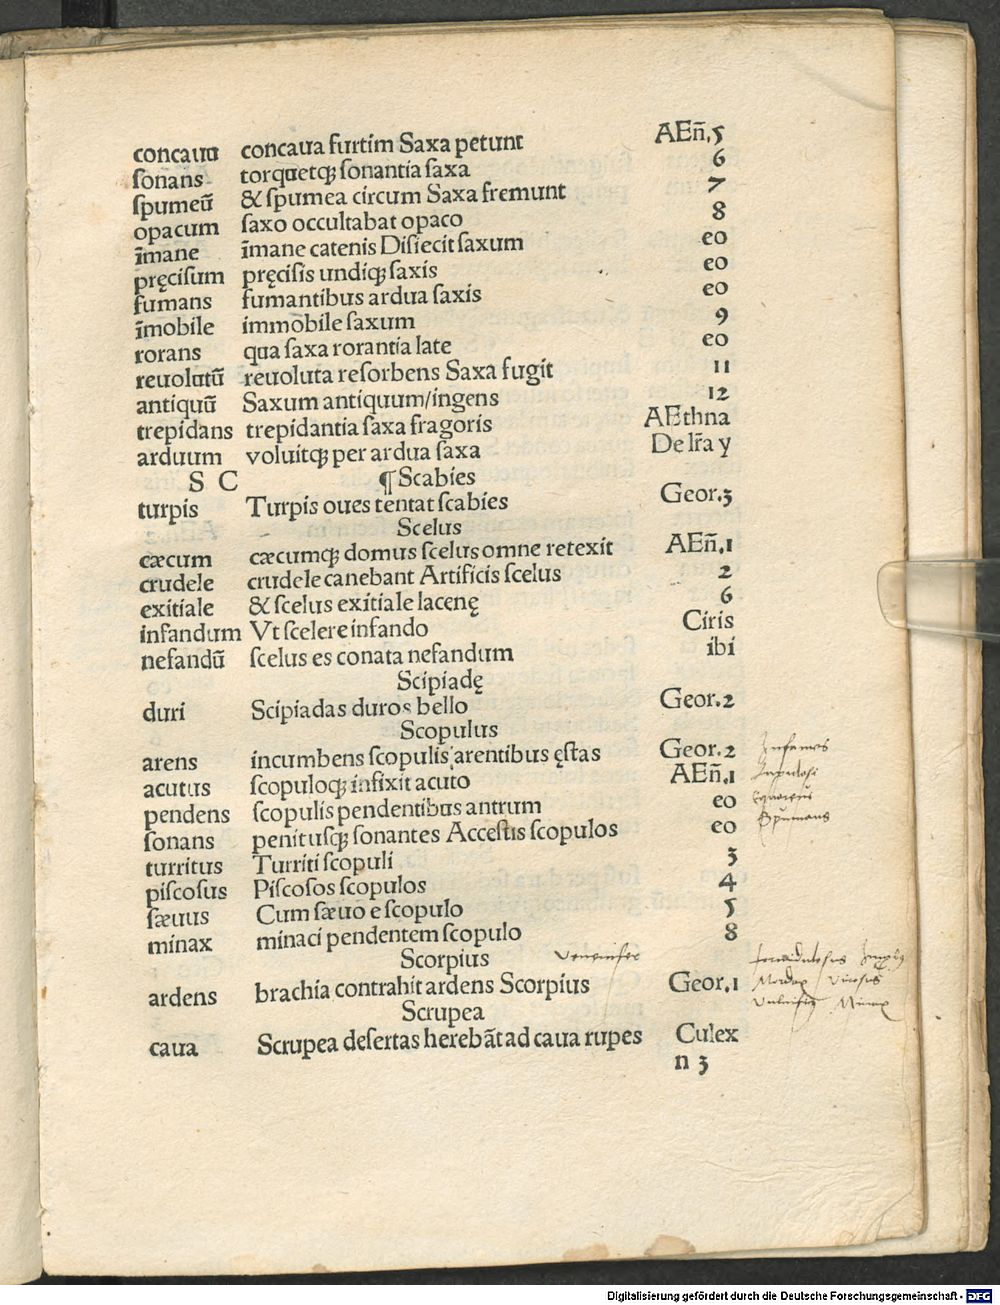 concaua concaua furtim Saxa petunt AEñ.5
sonans torquetqꝫ sonantia saxa 6
spumeũ & spumea circum Saxa fremunt 7
opacum saxo occultabat opaco 8
ĩmane ĩmane catenis Disiecit saxum eo
pręcisum pręcisis undiqꝫ saxis eo
fumans fumantibus ardua saxis eo
ĩmobile immõbile saxum 9
rorans qua saxa rorantia late eo
reuolutũ reuoluta resorbens Saxa fugit 11
antiquũ Saxum antiquum/ingens 12
trepidans trepidantia saxa fragoris AEthna
arduum voluitqꝫ per ardua saxa De lr̃a y
S C ¶Scabies
turpis Turpis oues tentat scabies Geor.3
Scelus
cæcum cæcumqꝫ domus scelus omne retexit AEñ.1
crudele crudele canebant Artificis scelus 2
exitiale & scelus exitiale lacenę 6
infandum Vt scelere infando Ciris
nefandũ scelus es conata nefandum ibi
Scipiadę
duri Scipiadas duros bello Geor.2
Scopulus
arens incumbens scopulis arentibus ęstas Geor.2 Infames
acutus scopuloqꝫ infixit acuto AEñ.1
pendens scopulis pendentibus antrum eo
sonans penitusqꝫ sonantes Accestis scopulos eo Spumans
turritus Turriti scopuli 3
piscosus Piscosos scopulos 4
sæuus Cum sæuo e scopulo 5
minax minaci pendentem scopulo 8
Scorpius
ardens brachia contrahit ardens Scorpius Geor.1 Mordax
Minax
Scrupea
caua Scrupea desertas herebãt ad caua rupes Culex
n 3
Digitalisierung gefördert durch die Deutsche Forschungsgemeinschaft - DFG